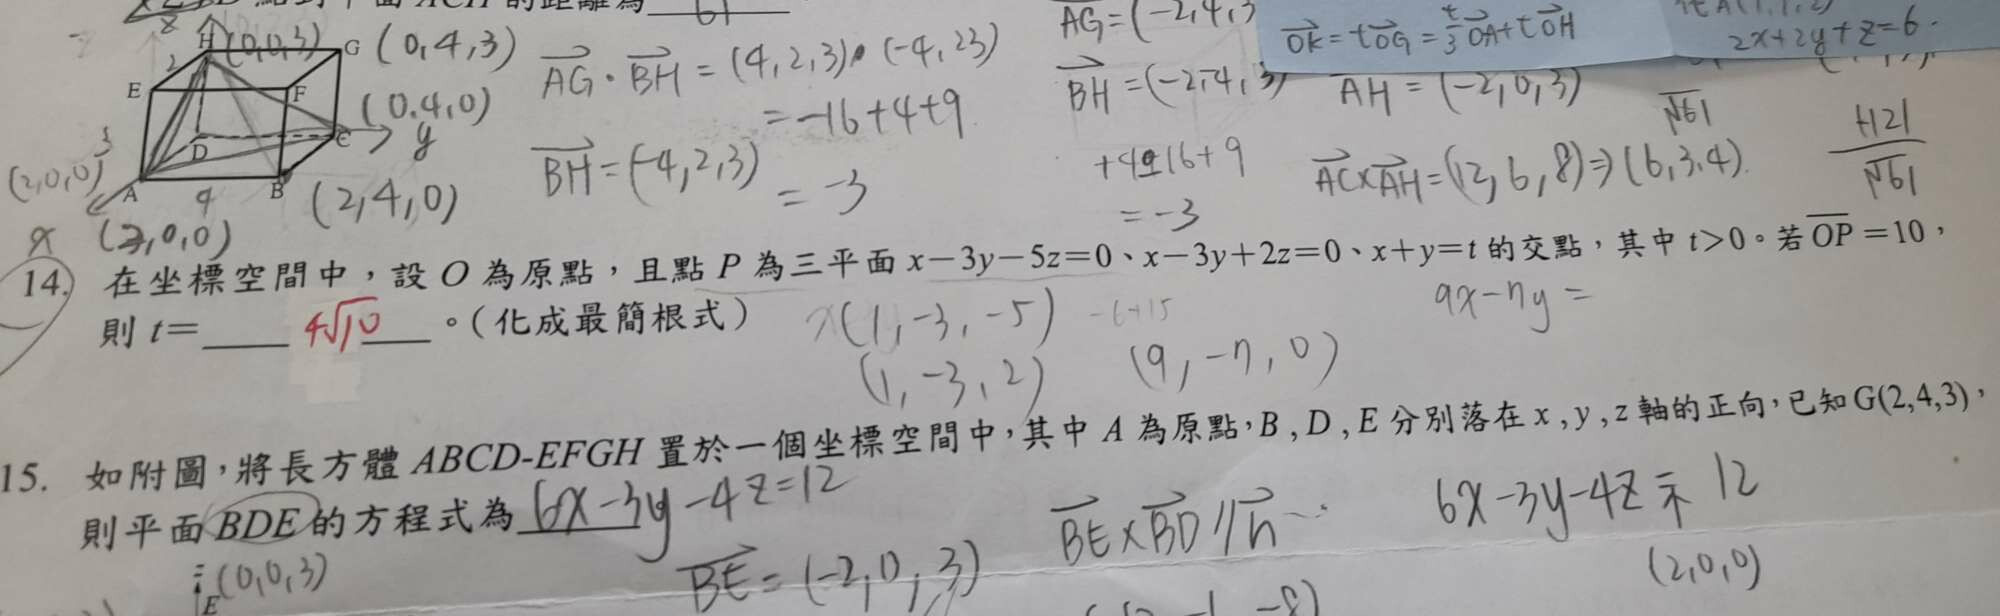 的距離為 61
z
H (0,0,3) G (0,4,3)
2
E F
(0,4,0)
3
D C y
(2,0,0)
A 4 B (2,4,0)
x (2,0,0)
AG · BH = (4,2,3) · (-4,2,3)
= -16+4+9
BH = (-4,2,3) = -3
AG = (-2,4,3
BH = (-2,-4,3)
+4-16+9
= -3
OK = tOG = t/3 OA + tOH
2x+2y+z=6.
AH = (-2,0,3)
√61
AC×AH = (12,6,8) ⇒ (6,3,4).
+12|
√61
14. 在坐標空間中,設 O 為原點,且點 P 為三平面 x-3y-5z=0、x-3y+2z=0、x+y=t 的交點,其中 t>0。若 OP=10,
則 t= 4√10 。(化成最簡根式)
x(1,-3,-5) -6+15
9x-7y=
(1,-3,2) (9,-7,0)
15. 如附圖,將長方體 ABCD-EFGH 置於一個坐標空間中,其中 A 為原點,B,D,E 分別落在 x,y,z 軸的正向,已知 G(2,4,3),
則平面 BDE 的方程式為 6x-3y-4z=12
BE×BD // n
6x-3y-4z = 12
(2,0,0)
(0,0,3)
E
BE = (-2,0,3)